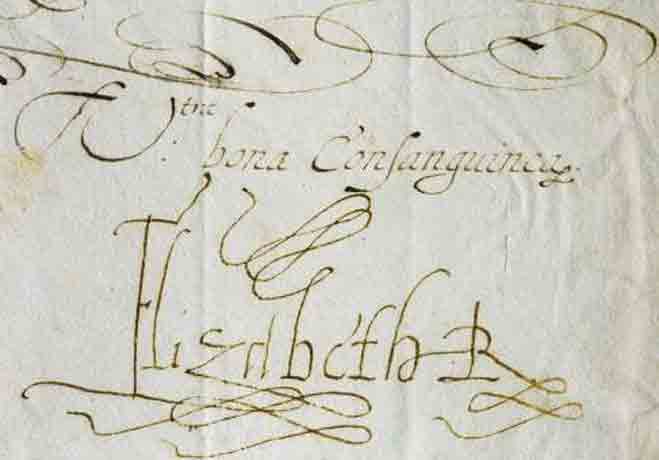 Vtnæ
bona Consanguinea
Elizabeth R